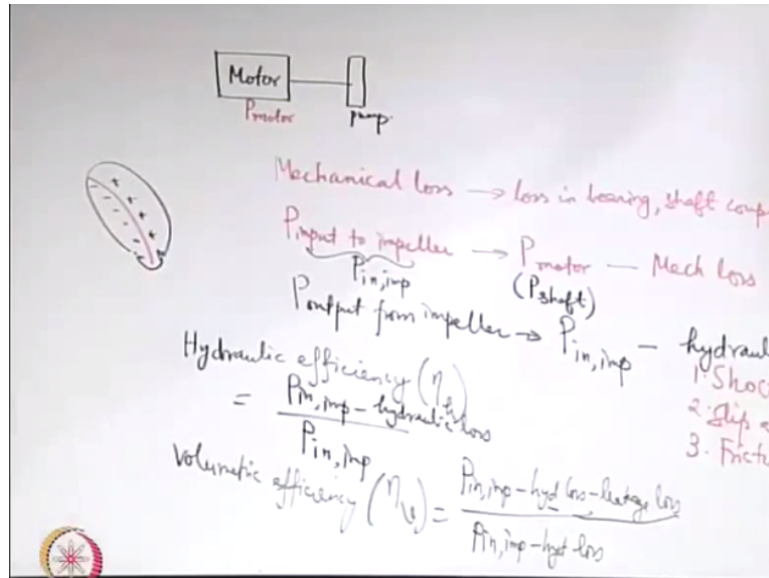 Motor
Pmotor
pump.
Mechanical loss → loss in bearing, shaft coup
Pinput to impeller → Pmotor — Mech loss
Pin,imp (Pshaft)
Poutput from impeller → Pin,imp — hydraul
1. Shoc
2. Slip
3. Frict
Hydraulic efficiency (ηh)
= Pin,imp - hydraulic loss
Pin,imp
Volumetric efficiency (ηv) = Pin,imp - hyd loss - leakage loss
Pin,imp - hyd loss